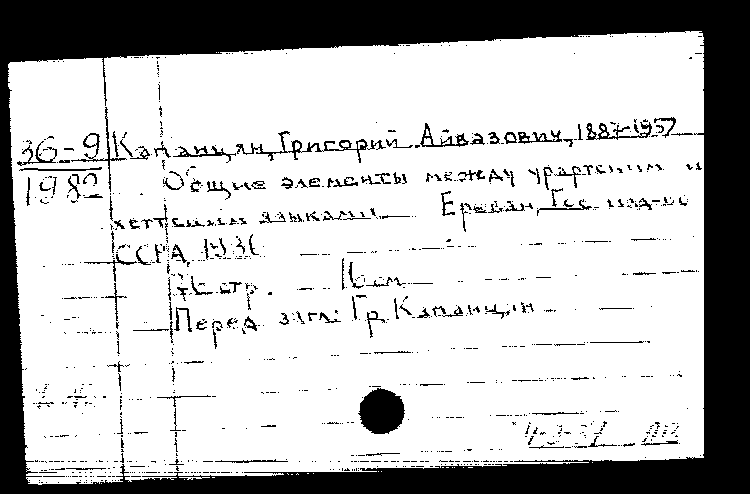 36-9 Капанцян, Григорий Айвазович, 1887-1957
1982 Общие элементы между урартским и
хеттским языками Ереван, Гос. изд-во
ССРА, 1936
стр. 16 см
Перед загл: Гр. Капанцян